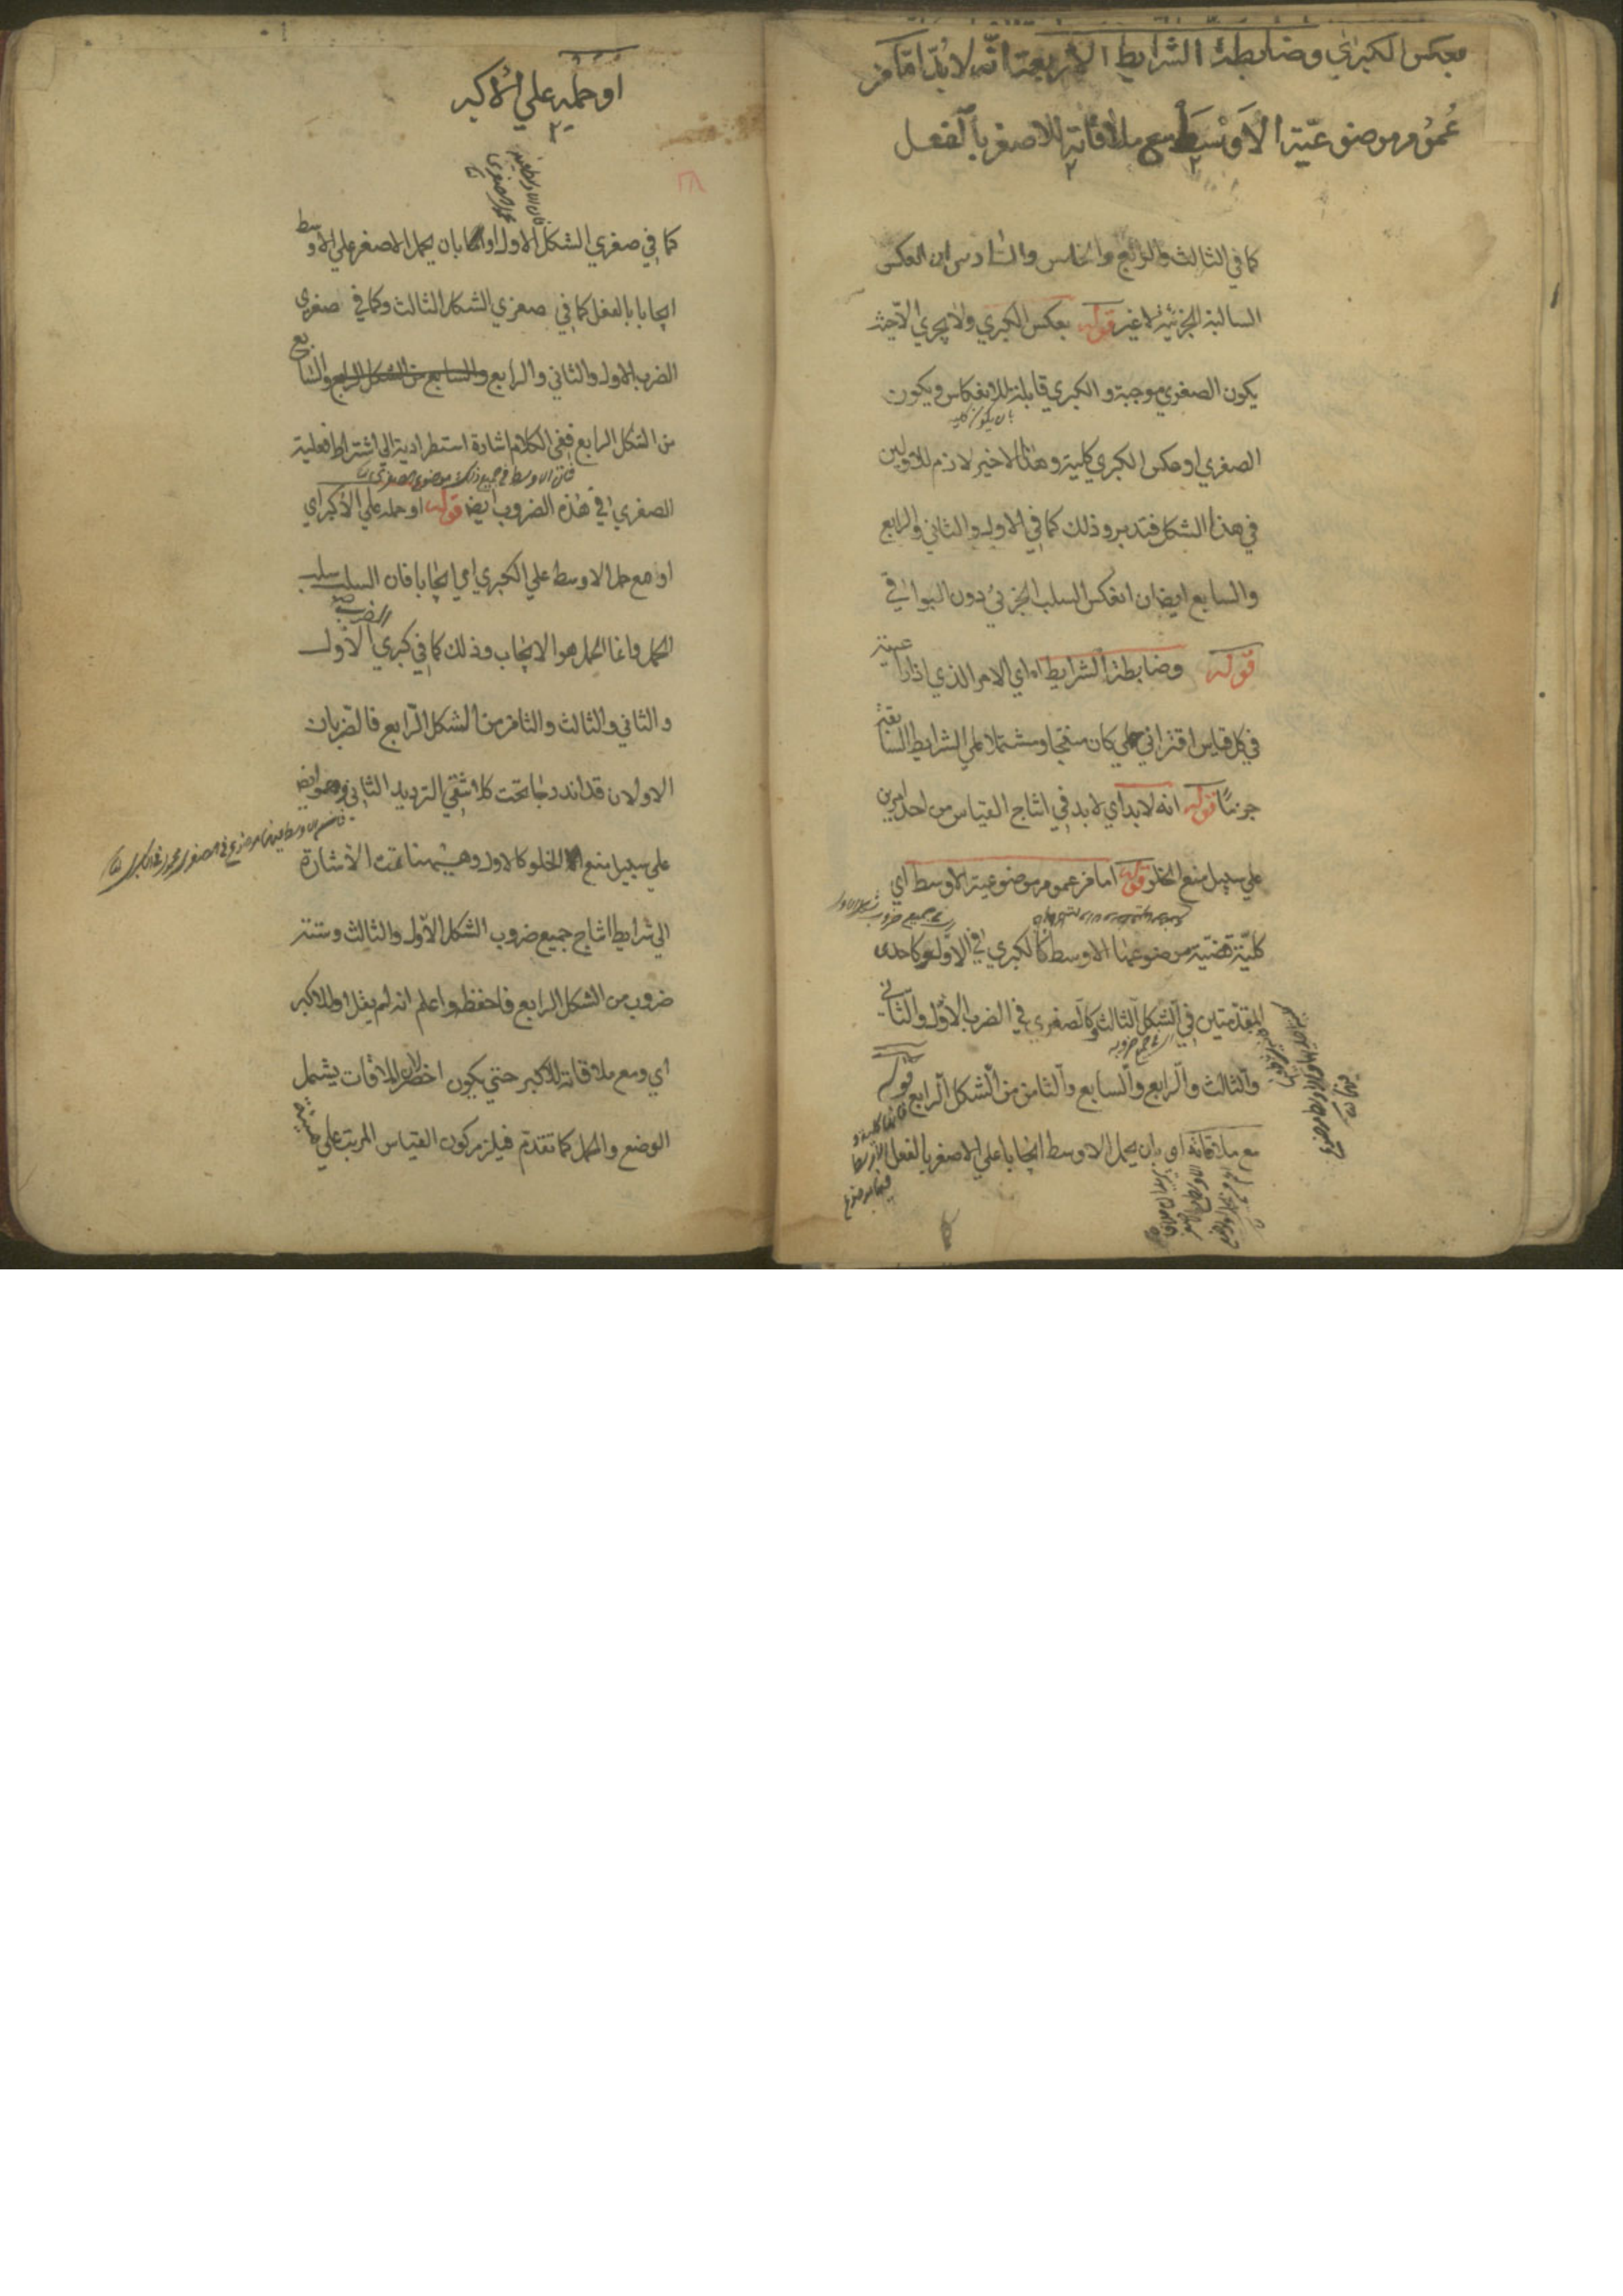 بعكس الكبري وضابطة الشرايط الاربعة انّه لا بُدّ امّا من
عُمومِ موضوعيّة الاَوْسَط مع ملاقاته للاصغر بالفعل
كما في الثالث والرابع والخامس والسادس ان انعكس
السالبة الجزئية لا غير قوله بعكس الكبري ولا يجري الّا حيث
يكون الصغري موجبة والكبري قابلة للانعكاس ويكون
الصغري او عكس الكبري كلية وهذا الاخير لازم للاولين
في هذا الشكل فتدبر وذلك كما في الاول والثاني والرابع
والسابع ايضا ان انعكس السلب الجزئي دون البواقي
قوله وضابطة الشرايط اه اي الامر الذي اذا راعيته
في كل قياس اقتراني حملي كان منتجا ومشتملا علي الشرايط السابقة
جزمًا قوله انه لا بد اي لا بد في انتاج القياس من احد امرين
علي سبيل منع الخلو قوله اما من عموم موضوعية الاوسط اي
كليّة قضيّة موضوعها الاوسط كالكبري في الاول وكاحدى
المقدّمتين في الشكل الثالث وكالصغرى في الضرب الاول والثاني
والثالث والرابع والسابع والثامن من الشكل الرابع قوله
مع ملاقاته اي بان يحمل الاوسط ايجابا علي الاصغر بالفعل
او حمله علي الاكبر
كما في صغري الشكل الاول او بان يحمل الاصغر علي الاوسط
ايجابا بالفعل كما في صغري الشكل الثالث وكما في صغري
الضرب الاول والثاني والرابع والسابع من الشكل الرابع والسابع
من الشكل الرابع ففي الكلام اشارة استطرادية الي اشتراط فعلية
فان الاوسط في جميع ذلك موضوع الصغرى
الصغري في هذه الضروب ايضا قوله او حمله علي الاكبر اي
او مع حمل الاوسط علي الكبري اي ايجابا فان السلب سلب
الحمل وانما الحمل هو الايجاب وذلك كما في كبري الضرب الاول
والثاني والثالث والثامن من الشكل الرابع فالضربان
الاولان قد اندرجا تحت كلا شقي الترديد الثاني وهو ايضا
علي سبيل منع الخلو كالاول وهيهنا تمت الاشارة
الي شرايط انتاج جميع ضروب الشكل الاول والثالث وستة
ضروب من الشكل الرابع فاحفظ واعلم انه لم يقل او للاكبر
اي ومع ملاقاته للاكبر حتي يكون اخصر لان الملاقات يشمل
الوضع والحمل كما تقدم فيلزم كون القياس المرتب علي هيئة